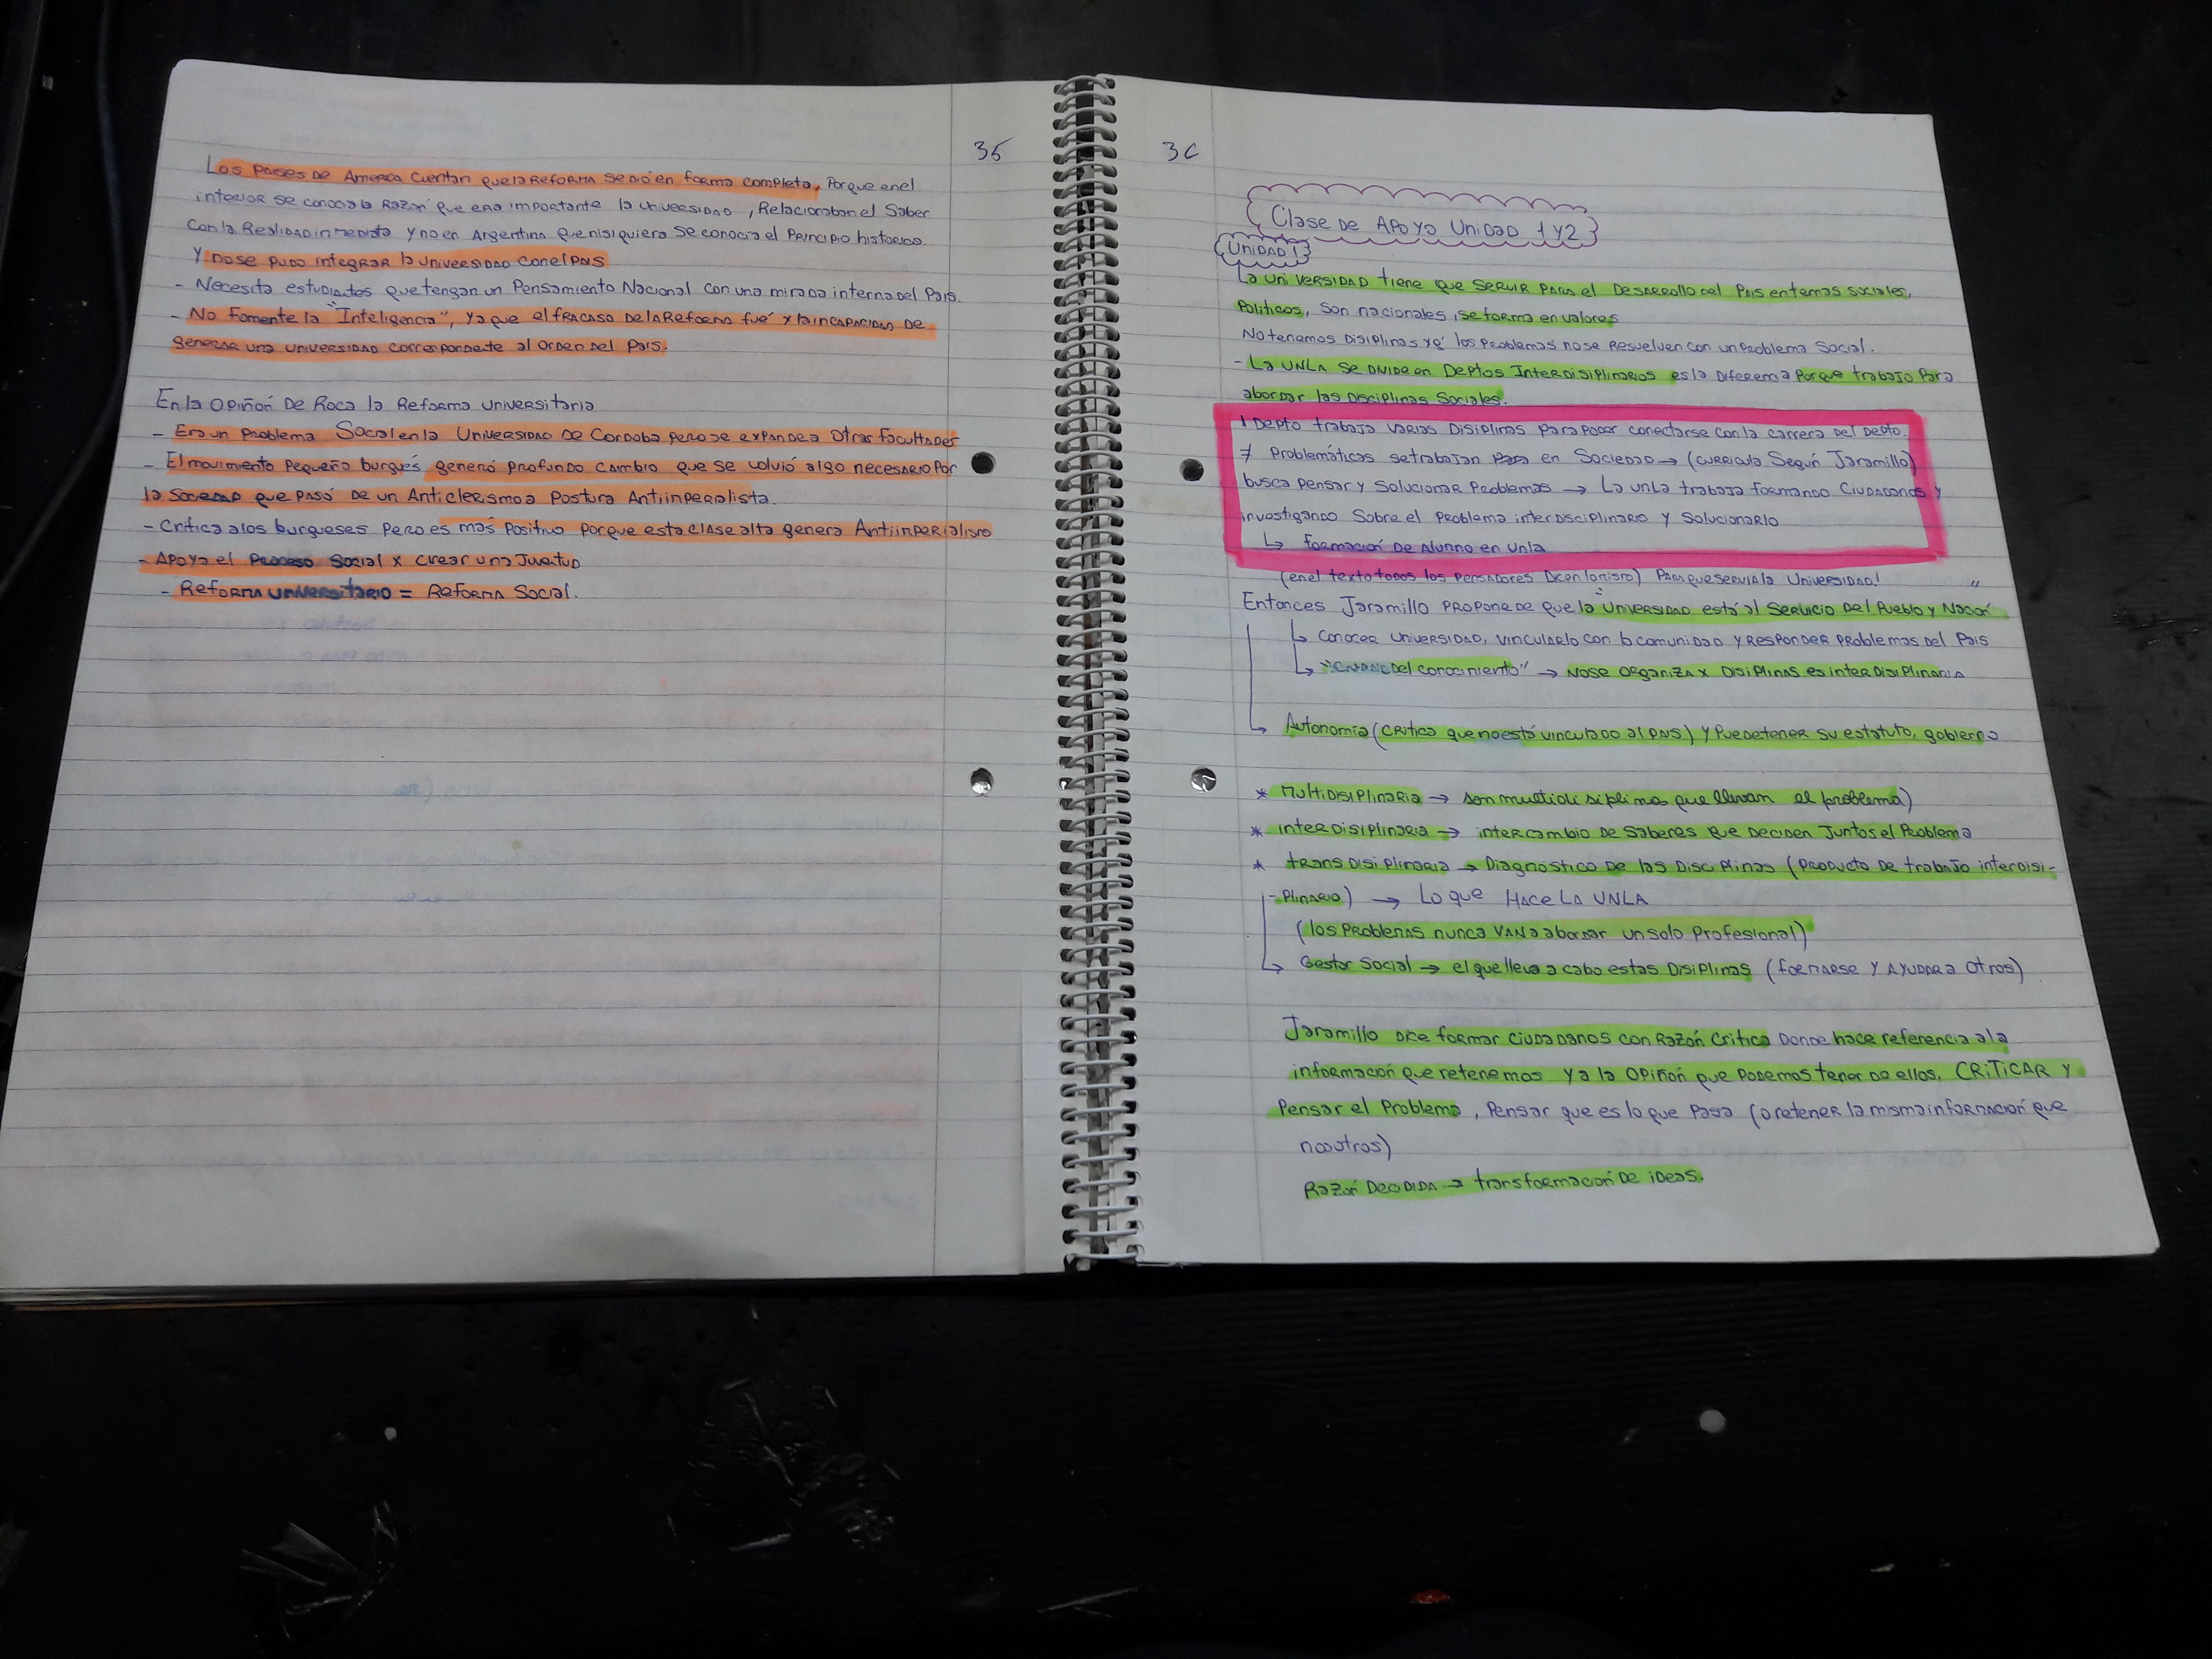 35
Los Paises De America cuentan que la Reforma se dió en forma completa, Porque en el
interior se conocia la Razón que era importante la universidad, Relacionaban el Saber
Con la Realidad inmediata y no en Argentina que ni siquiera se conocia el Principio historico.
Y no se pudo integrar la universidad con el PNS
- Necesita estudiantes que tengan un Pensamiento Nacional con una mirada interna del Pais.
- No fomente la "Inteligencia", ya que el fracaso de la Reforma fué x la incapacidad de
generar una universidad correspondiente al orden del Pais.
En la Opiñón De Roca la Reforma universitaria
- Era un Problema Social en la Universidad De Cordoba pero se expande a otras facultades
- El movimiento Pequeño burgués generó profundo cambio que se volvió algo necesario por
la Sociedad que Pasó de un Anticlerismo a Postura Antiinperialista.
- Critica a los burgueses Pero es más Positivo Porque esta clase alta genera Antiinperialismo
- Apoya el Proceso Social x crear una Juventud
- Reforma universitario = Reforma Social.
36
Clase De Apoyo Unidad 1 y 2
Unidad 1
La universidad tiene que servir para el Desarrollo del Pais en temas sociales,
Politicos, son nacionales, se forma en valores
No tenemos Disiplinas ya q' los Problemas no se Resuelven con un Problema Social.
- La UNLA se divide en Deptos Interdisiplinarios es la Diferencia Porque trabaja Para
abordar las Disciplinas Sociales.
1 Depto trabaja varias Disiplinas para poder conectarse con la carrera del Depto.
≠ Problemáticas se trabajan en Sociedad → (curricula Según Jaramillo)
busca pensar y solucionar Problemas → La unla trabaja formando Ciudadanos y
investigando Sobre el Problema interdisciplinario y Solucionarlo
↳ formación De Alumno en unla
(en el texto todos los pensadores Dicen lo mismo) Para que servia la Universidad!
Entonces Jaramillo Propone De que la "universidad está al Servicio Del Pueblo y Nación"
↳ Conocer universidad, vincularlo con la comunidad y Responder Problemas del Pais
↳ Del conocimiento" → No se organiza x Disiplinas es interdisiplinaria
↳ Autonomia (critica que no está vinculado al PNS) y Puede tener su estatuto, gobierno
* Multidisiplinaria → son multidisiplinas que llevan el problema)
* interdisiplinaria → intercambio De Saberes que deciden Juntos el Problema
* transdisiplinaria → Diagnóstico De las Disciplinas (Producto De trabajo interdisi-
-plinario) → Lo que Hace La UNLA
(los Problemas nunca van a abordar un solo Profesional)
↳ Gestor Social → el que lleva a cabo estas Disiplinas (formarse y ayudar a otros)
Jaramillo dice formar ciudadanos con Razón Critica Donde hace referencia a la
información que retenemos y a la Opiñón que podemos tener de ellos, CRITICAR y
Pensar el Problema, Pensar que es lo que Pasa (o retener la misma información que
nosotros)
Razón Decidida → transformación De ideas.